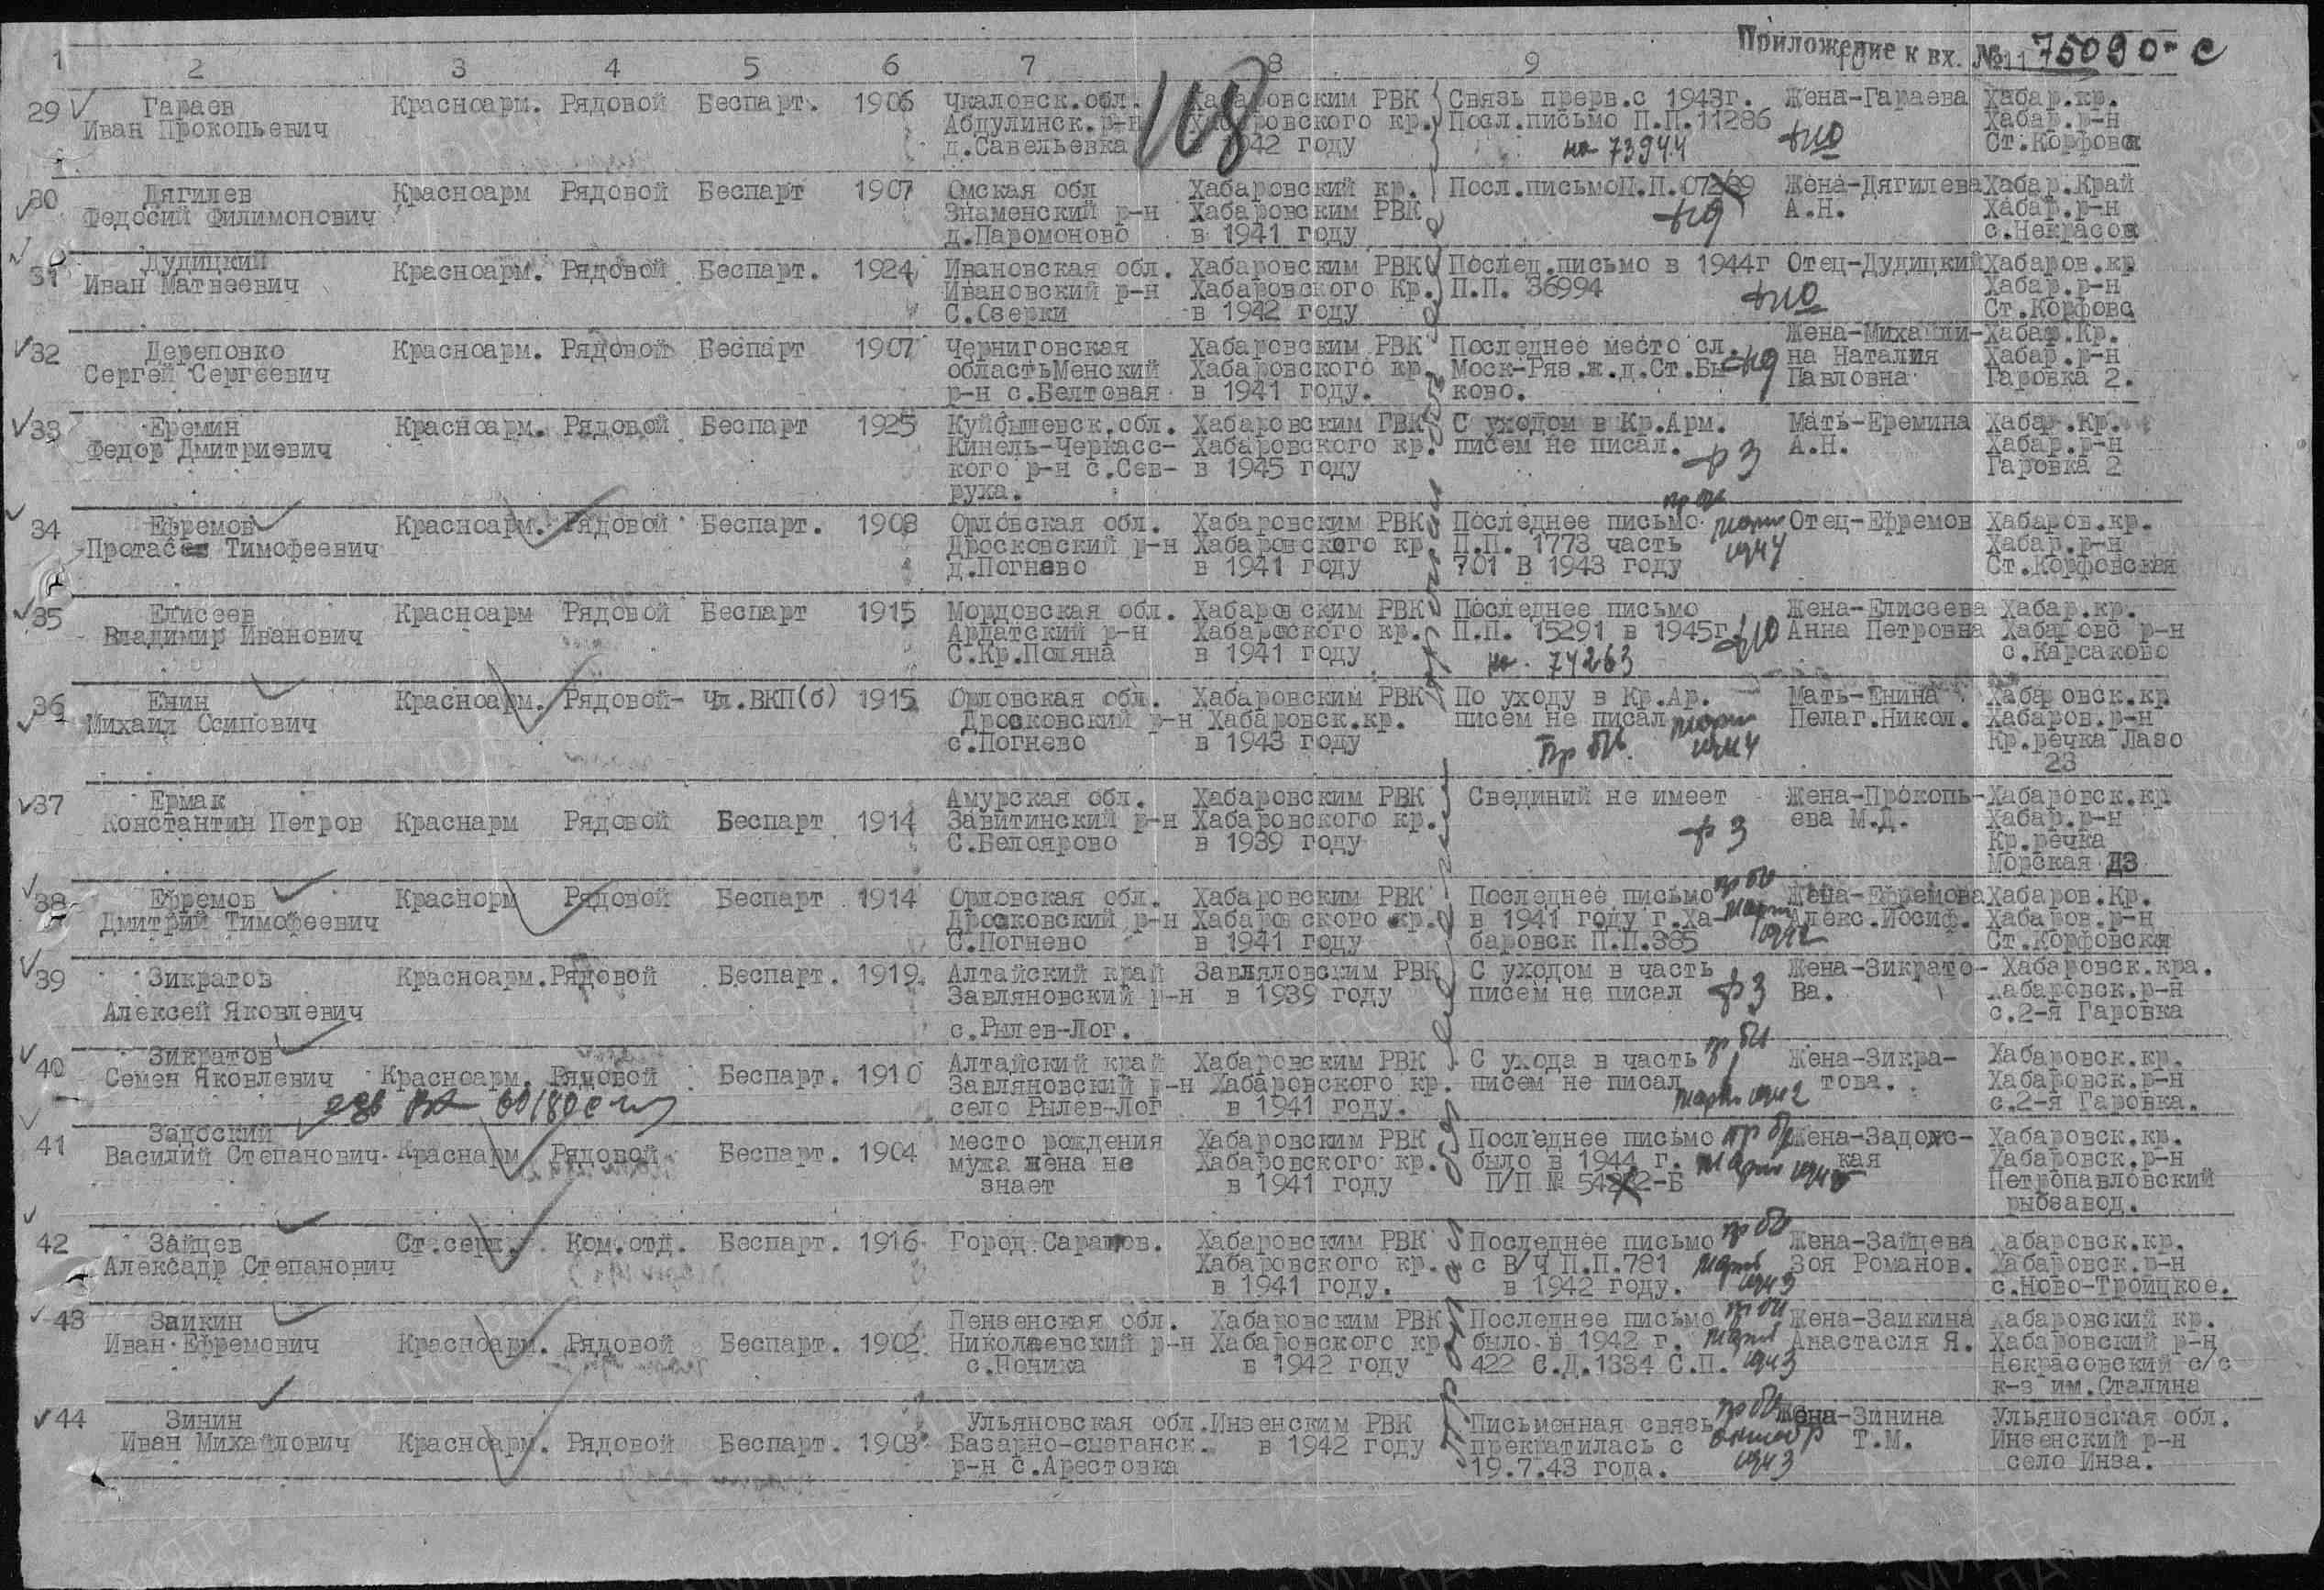 Приложение к вх. № 75090-с
1 2 3 4 5 6 7 8 9 10 11
108
29 Гараев Красноарм. Рядовой Беспарт. 1906 Чкаловск.обл. Хабаровским РВК Связь прерв.с 1943г. Жена-Гараева Хабар.кр.
Иван Прокопьевич Абдулинск.р-н Хабаровского кр. Посл.письмо П.П.11286 Хабар.р-н
д.Савельевка 1942 году на 73944 Ст.Корфовск
30 Дягилев Красноарм Рядовой Беспарт 1907 Омская обл Хабаровский кр. Посл.письмоП.П. Жена-Дягилева Хабар.Край
Федосий Филимонович Знаменский р-н Хабаровским РВК А.Н. Хабар.р-н
д.Паромоново в 1941 году с.Некрасов
31 Дудицкий Красноарм. Рядовой Беспарт. 1924 Ивановская обл. Хабаровским РВК Послед.письмо в 1944г Отец-Дудицкий Хабаров.кр
Иван Матвеевич Ивановский р-н Хабаровского Кр. П.П. 36994 Хабар.р-н
С.Озерки в 1942 году Ст.Корфовс
Жена-Михайли- Хабар.Кр.
32 Дереповко Красноарм. Рядовой Беспарт 1907 Черниговская Хабаровским РВК Последнее место сл. на Наталия Хабар.р-н
Сергей Сергеевич областьМенский Хабаровского кр. Моск-Ряз.ж.д.Ст.Бы- Павловна Гаровка 2.
р-н с.Белтовая в 1941 году. ково.
33 Еремин Красноарм. Рядовой Беспарт 1925 Куйбышевск.обл. Хабаровским РВК С уходом в Кр.Арм. Мать-Еремина Хабар.Кр.
Федор Дмитриевич Кинель-Черкасс- Хабаровского кр. писем не писал. А.Н. Хабар.р-н
кого р-н с.Сев- в 1945 году ф 3 Гаровка 2
руха.
34 Ефремов Красноарм. Рядовой Беспарт. 1908 Орловская обл. Хабаровским РВК Последнее письмо Отец-Ефремов Хабаров.кр.
Протасев Тимофеевич Дросковский р-н Хабаровского кр П.П. 1773 часть Хабар.р-н
д.Погнево в 1941 году 701 В 1943 году 1944 Ст.Корфовская
35 Елисеев Красноарм Рядовой Беспарт 1915 Мордовская обл. Хабаровским РВК Последнее письмо Жена-Елисеева Хабар.кр.
Владимир Иванович Ардатский р-н Хабаровского кр. П.П. 15291 в 1945г. Анна Петровна Хабаровс р-н
С.Кр.Поляна в 1941 году на 74263 с.Карсаково
36 Енин Красноарм. Рядовой- Чл.ВКП(б) 1915 Орловская обл. Хабаровским РВК По уходу в Кр.Ар. Мать-Енина Хабаровск.кр
Михаил Осипович Дросковский р-н Хабаровск.кр. писем не писал Пелаг.Никол. Хабаров.р-н
с.Погнево в 1943 году пр бп март 1944 Кр.речка Лазо
23
37 Ермак Амурская обл. Хабаровским РВК Свединий не имеет Жена-Прокопь- Хабаровск.кр
Константин Петров Краснарм Рядовой Беспарт 1914 Завитинский р-н Хабаровского кр. ева М.Д. Хабар.р-н
С.Белоярово в 1939 году ф 3 Кр.речка
Морская Д3
38 Ефремов Красноорм Рядовой Беспарт 1914 Орловская обл. Хабаровским РВК Последнее письмо Жена-Ефремова Хабаров.Кр.
Дмитрий Тимофеевич Дросковский р-н Хабаровского кр. в 1941 году г.Ха- Алекс.Иосиф. Хабаров.р-н
С.Погнево в 1941 году баровск П.П.385 март 1942 Ст.Корфовская
39 Зикратов Красноарм.Рядовой Беспарт. 1919 Алтайский край Завляловским РВК С уходом в часть Жена-Зикрато- Хабаровск.кра.
Завляновский р-н в 1939 году писем не писал ф 3 Ва. Хабаровск.р-н
Алексей Яковлевич с.Рылев-Лог. с.2-я Гаровка
40 Зикратов Алтайский край Хабаровским РВК С ухода в часть пр бп Жена-Зикра- Хабаровск.кр.
Семен Яковлевич Красноарм. Рядовой Беспарт. 1910 Завляновский р-н Хабаровского кр. писем не писал това. Хабаровск.р-н
село Рылев-Лог в 1941 году. март 1942 с.2-я Гаровка.
41 Задоский место рождения Хабаровским РВК Последнее письмо Жена-Задонс- Хабаровск.кр.
Василий Степанович Краснарм Рядовой Беспарт. 1904 мужа жена не Хабаровского кр. было в 1944 г. кая Хабаровск.р-н
знает в 1941 году П/П № Петропавловский
рыбзавод.
42 Зайцев Ст.серж. Ком.отд. Беспарт. 1916 Город Саратов. Хабаровским РВК Последнее письмо Жена-Зайцева Хабаровск.кр.
Алексадр Степанович Хабаровского кр. с В/Ч П.П.781 Зоя Романов. Хабаровск.р-н
в 1941 году. в 1942 году. 1943 с.Ново-Троицкое.
43 Заикин Пензенская обл. Хабаровским РВК Последнее письмо Жена-Заикина Хабаровский кр.
Иван Ефремович Красноарм. Рядовой Беспарт. 1902 Николаевский р-н Хабаровского кр было в 1942 г. Анастасия Я. Хабаровский р-н
с.Поника в 1942 году 422 С.Д.1334 С.П. 1943 Некрасовский с/с
к-з им.Сталина
44 Зинин Ульяновская обл. Инзенским РВК Письменная связь Жена-Зинина Ульяновская обл.
Иван Михайлович Красноарм. Рядовой Беспарт. 1903 Базарно-сызганск. в 1942 году прекратилась с Т.М. Инзенский р-н
р-н с.Арестовка 19.7.43 года. 1943 село Инза.